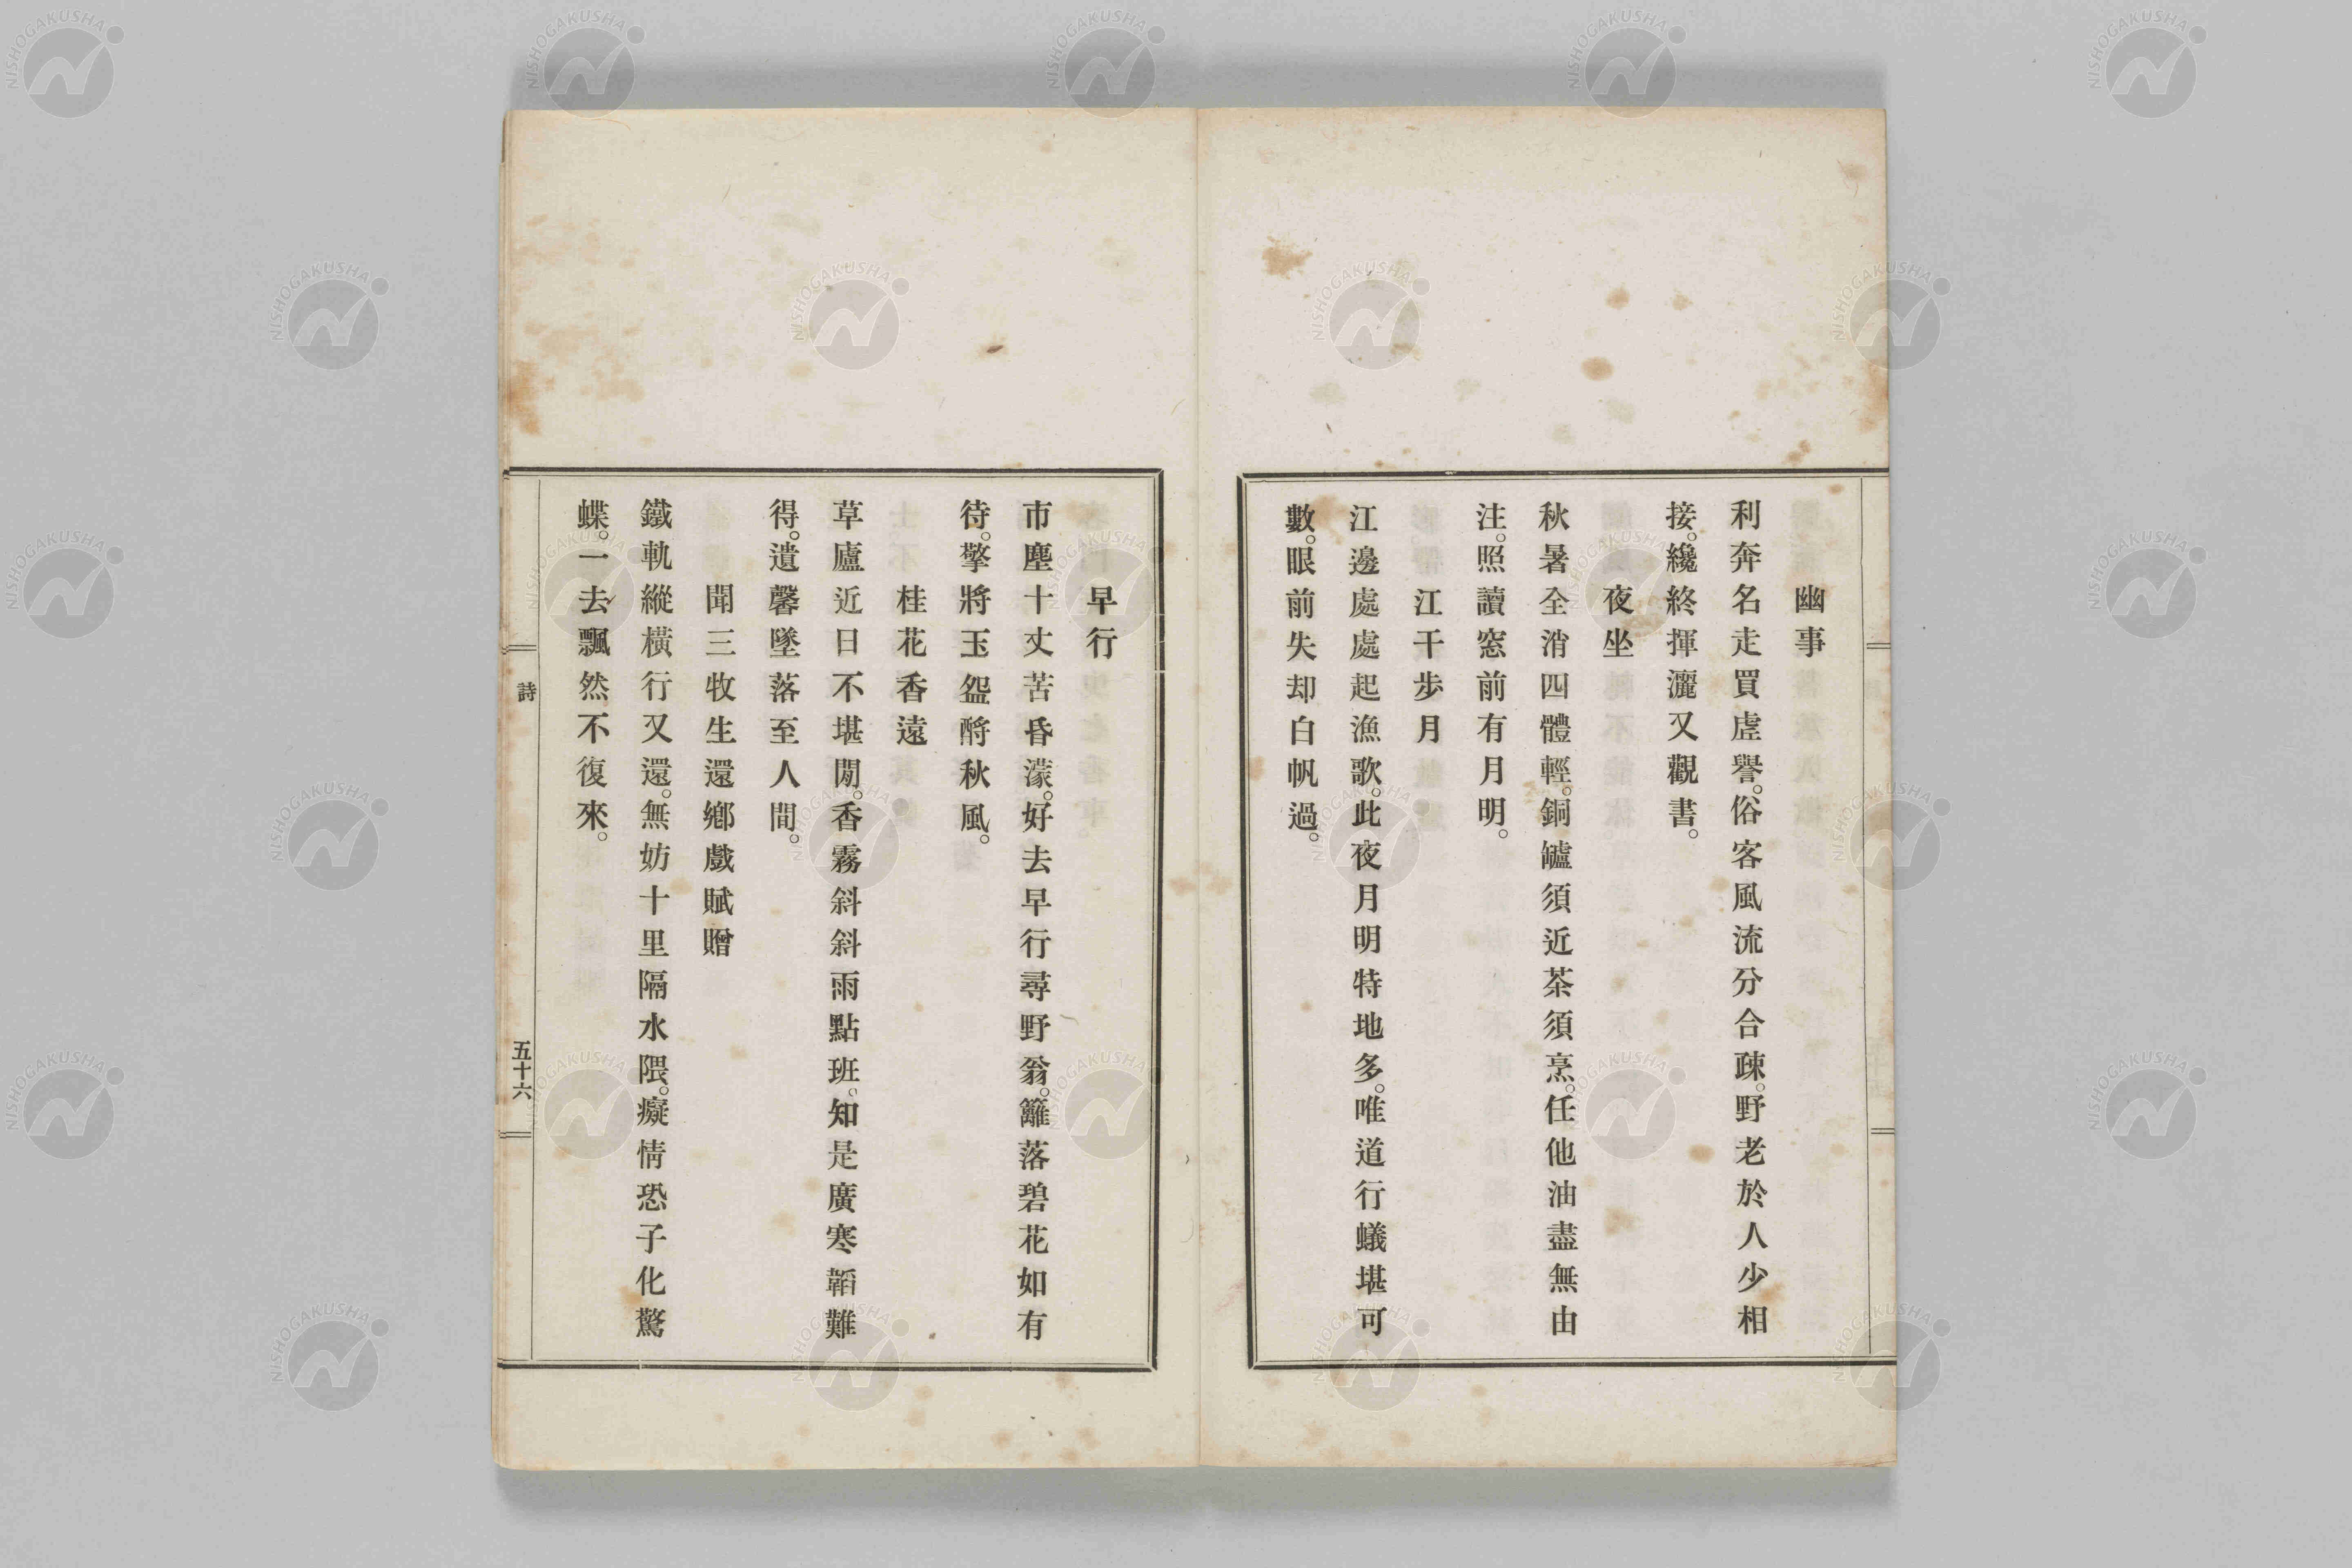 幽事
利奔名走買虛譽。俗客風流分合疎。野老於人少相
接。纔終揮灑又觀書。
夜坐
秋暑全消四體輕。銅罏須近茶須烹。任他油盡無由
注。照讀窓前有月明。
江干步月
江邊處處起漁歌。此夜月明特地多。唯道行蟻堪可
數。眼前失却白帆過。
早行
市塵十丈苦昏濛。好去早行尋野翁。籬落碧花如有
待。擎將玉盌酹秋風。
桂花香遠
草廬近日不堪閒。香霧斜斜雨點班。知是廣寒韜難
得。遺馨墜落至人間。
聞三牧生還鄉戲賦贈
鐵軌縱橫行又還。無妨十里隔水隈。癡情恐子化驚
蝶。一去飄然不復來。
詩
五十六
NISHOGAKUSHA